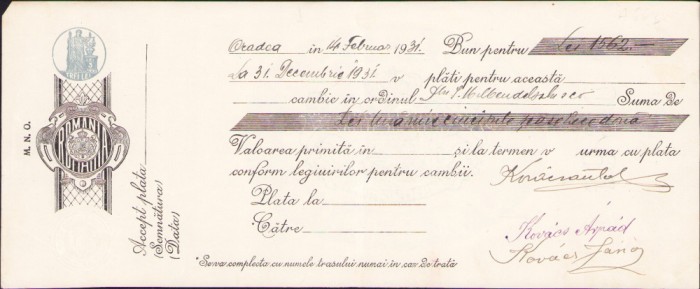 Oradea in 14 Februar 1931. Bun pentru Lei 1562.—
La 31. Decembrie 1931. v plăti pentru această
cambie în ordinul Suma de
Lei
Valoarea primită în și la termen v urma cu plata
conform legiuirilor pentru cambii.
Plata la
Către
Kovács Árpád
Kovács János
*Se va complecta cu numele trasului numai în caz de trată
M. N. O.
ROMANIA
Accept plata
(Semnătura)
(Data)